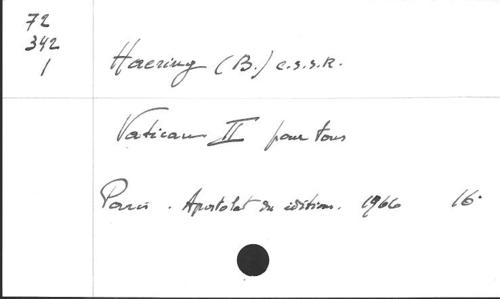 72
342
1
Haering (B.) c.s.s.R.
Vatican II pour tous
Paris. Apostolat des éditions. 1966 16°